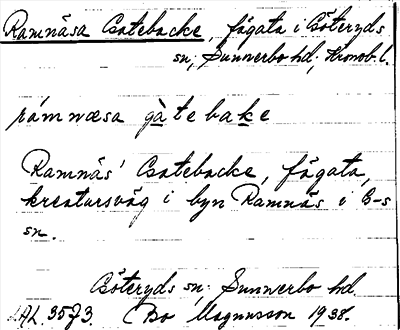 Ramnäsa Gatebacke, fägata i Göteryds
sn, Sunnerbo hd, Kronob. l.
rámnæsa gàtebake
Ramnäs' Gatebacke, fägata,
kreatursväg i byn Ramnäs i G-s
sn.
Göteryds sn, Sunnerbo hd.
AL. 3573. Bo Magnusson 1938.